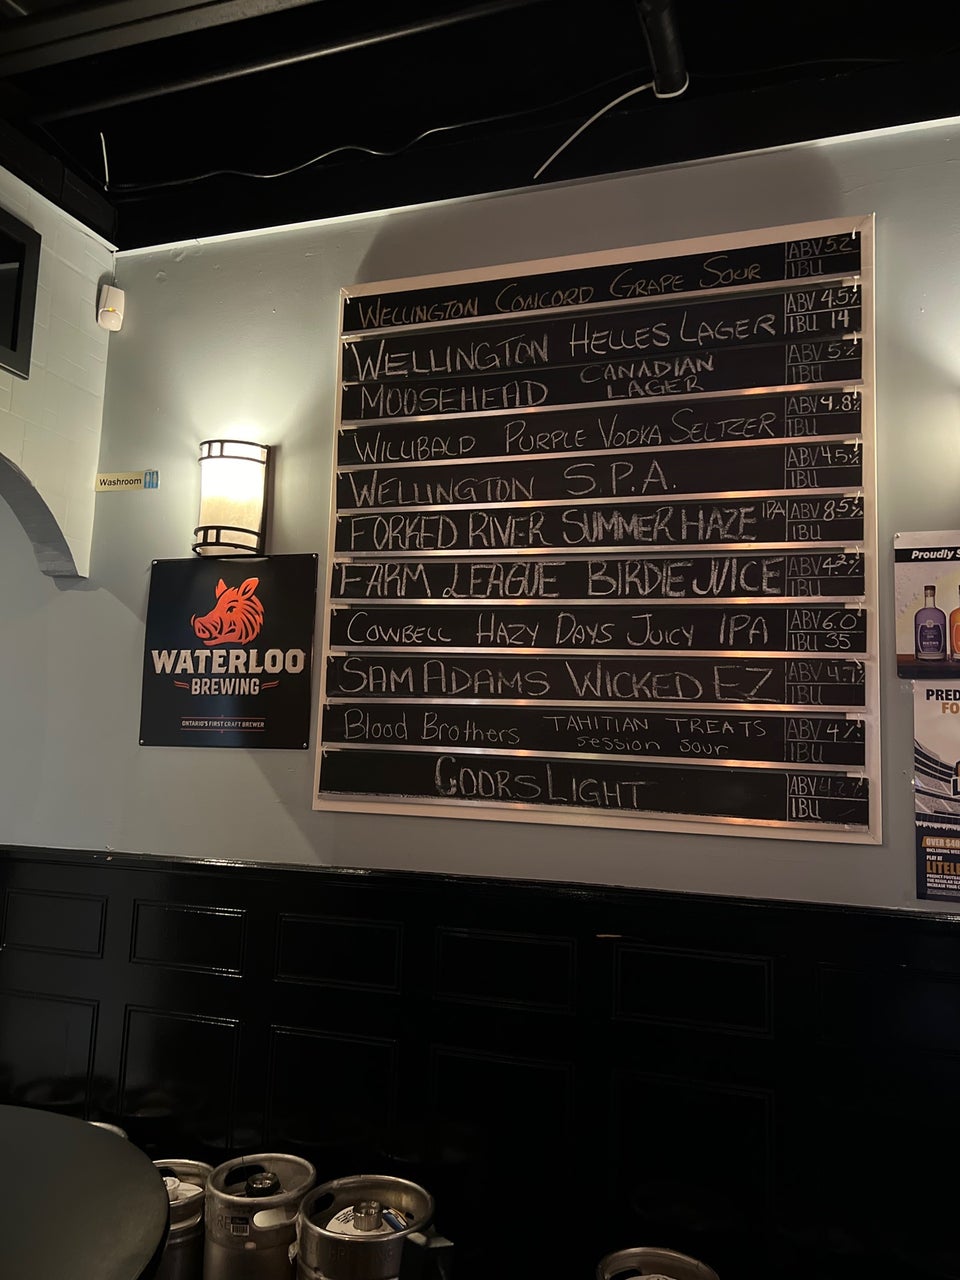 WELLINGTON CONCORD GRAPE SOUR ABV 5.2
IBU
WELLINGTON HELLES LAGER ABV 4.5%
IBU 14
MOOSEHEAD CANADIAN LAGER ABV 5%
IBU
WILLIBALD PURPLE VODKA SELTZER ABV 4.8%
IBU
WELLINGTON S.P.A. ABV 4.5%
IBU
FORKED RIVER SUMMER HAZE IPA ABV 8.5%
IBU
FARM LEAGUE BIRDIE JUICE ABV 4.2%
IBU
COWBELL HAZY DAYS JUICY IPA ABV 6.0
IBU 35
SAM ADAMS WICKED EZ ABV 4.7%
IBU
Blood Brothers TAHITIAN TREATS ABV 4%
session sour IBU
COORS LIGHT ABV
IBU
Washroom
WATERLOO
BREWING
ONTARIO'S FIRST CRAFT BREWER
Proudly S
PRED
FO
OVER $40
PLAY AT
LITEL